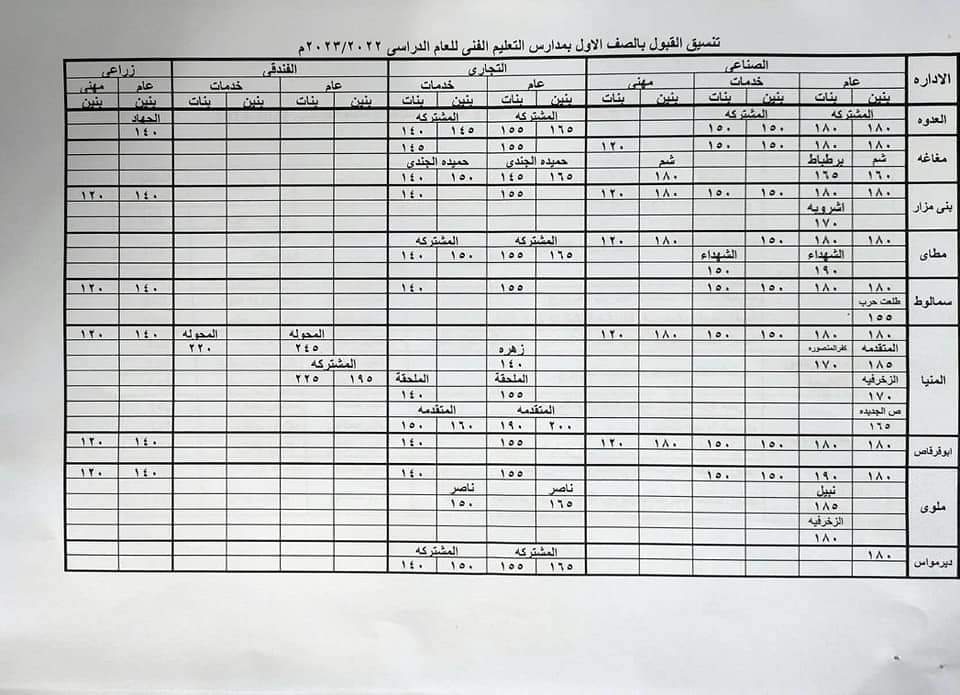 تنسيق القبول بالصف الاول بمدارس التعليم الفنى للعام الدراسى ٢٠٢٣/٢٠٢٢م
الاداره الصناعى التجارى الفندقى زراعى
عام خدمات مهنى عام خدمات عام خدمات عام مهنى
بنين بنات بنين بنات بنين بنات بنين بنات بنين بنات بنين بنات بنين بنات بنين بنين
العدوه المشتركه المشتركه المشتركه المشتركه الجهاد
١٨٠ ١٨٠ ١٥٠ ١٥٠ ١٦٥ ١٥٥ ١٤٥ ١٤٠ ١٤٠
مغاغه ١٨٠ ١٨٠ ١٥٠ ١٥٠ ١٢٠ ١٥٥ ١٤٥
شم برطباط شم حميده الجندى حميده الجندى
١٦٠ ١٦٥ ١٨٠ ١٦٥ ١٤٥ ١٥٠ ١٤٠
بنى مزار ١٨٠ ١٨٠ ١٥٠ ١٥٠ ١٨٠ ١٢٠ ١٥٥ ١٤٠ ١٤٠ ١٢٠
اشرويه
١٧٠
مطاى ١٨٠ ١٨٠ ١٥٠ ١٨٠ ١٢٠ المشتركه المشتركه
الشهداء الشهداء ١٦٥ ١٥٥ ١٥٠ ١٤٠
١٩٠ ١٥٠
سمالوط ١٨٠ ١٨٠ ١٥٠ ١٥٠ ١٥٥ ١٤٠ ١٤٠ ١٢٠
طلعت حرب
١٥٥
المنيا ١٨٠ ١٨٠ ١٥٠ ١٥٠ ١٨٠ ١٢٠ المحوله المحوله ١٤٠ ١٢٠
المتقدمه كفرالمنصوره زهره ٢٤٥ ٢٢٠
١٨٥ ١٧٠ ١٤٠ المشتركه
الزخرفيه الملحقة الملحقة ١٩٥ ٢٢٥
١٧٠ ١٥٥ ١٤٠
ص الجديده المتقدمه المتقدمه
١٦٥ ٢٠٠ ١٩٠ ١٦٠ ١٥٠
ابوقرقاص ١٨٠ ١٨٠ ١٥٠ ١٥٠ ١٨٠ ١٢٠ ١٥٥ ١٤٠ ١٤٠ ١٢٠
ملوى ١٨٠ ١٩٠ ١٥٠ ١٥٠ ١٥٥ ١٤٠ ١٤٠ ١٢٠
نبيل ناصر ناصر
١٨٥ ١٦٥ ١٥٠
الزخرفيه
١٨٠
ديرمواس ١٨٠ المشتركه المشتركه
١٦٥ ١٥٥ ١٥٠ ١٤٠